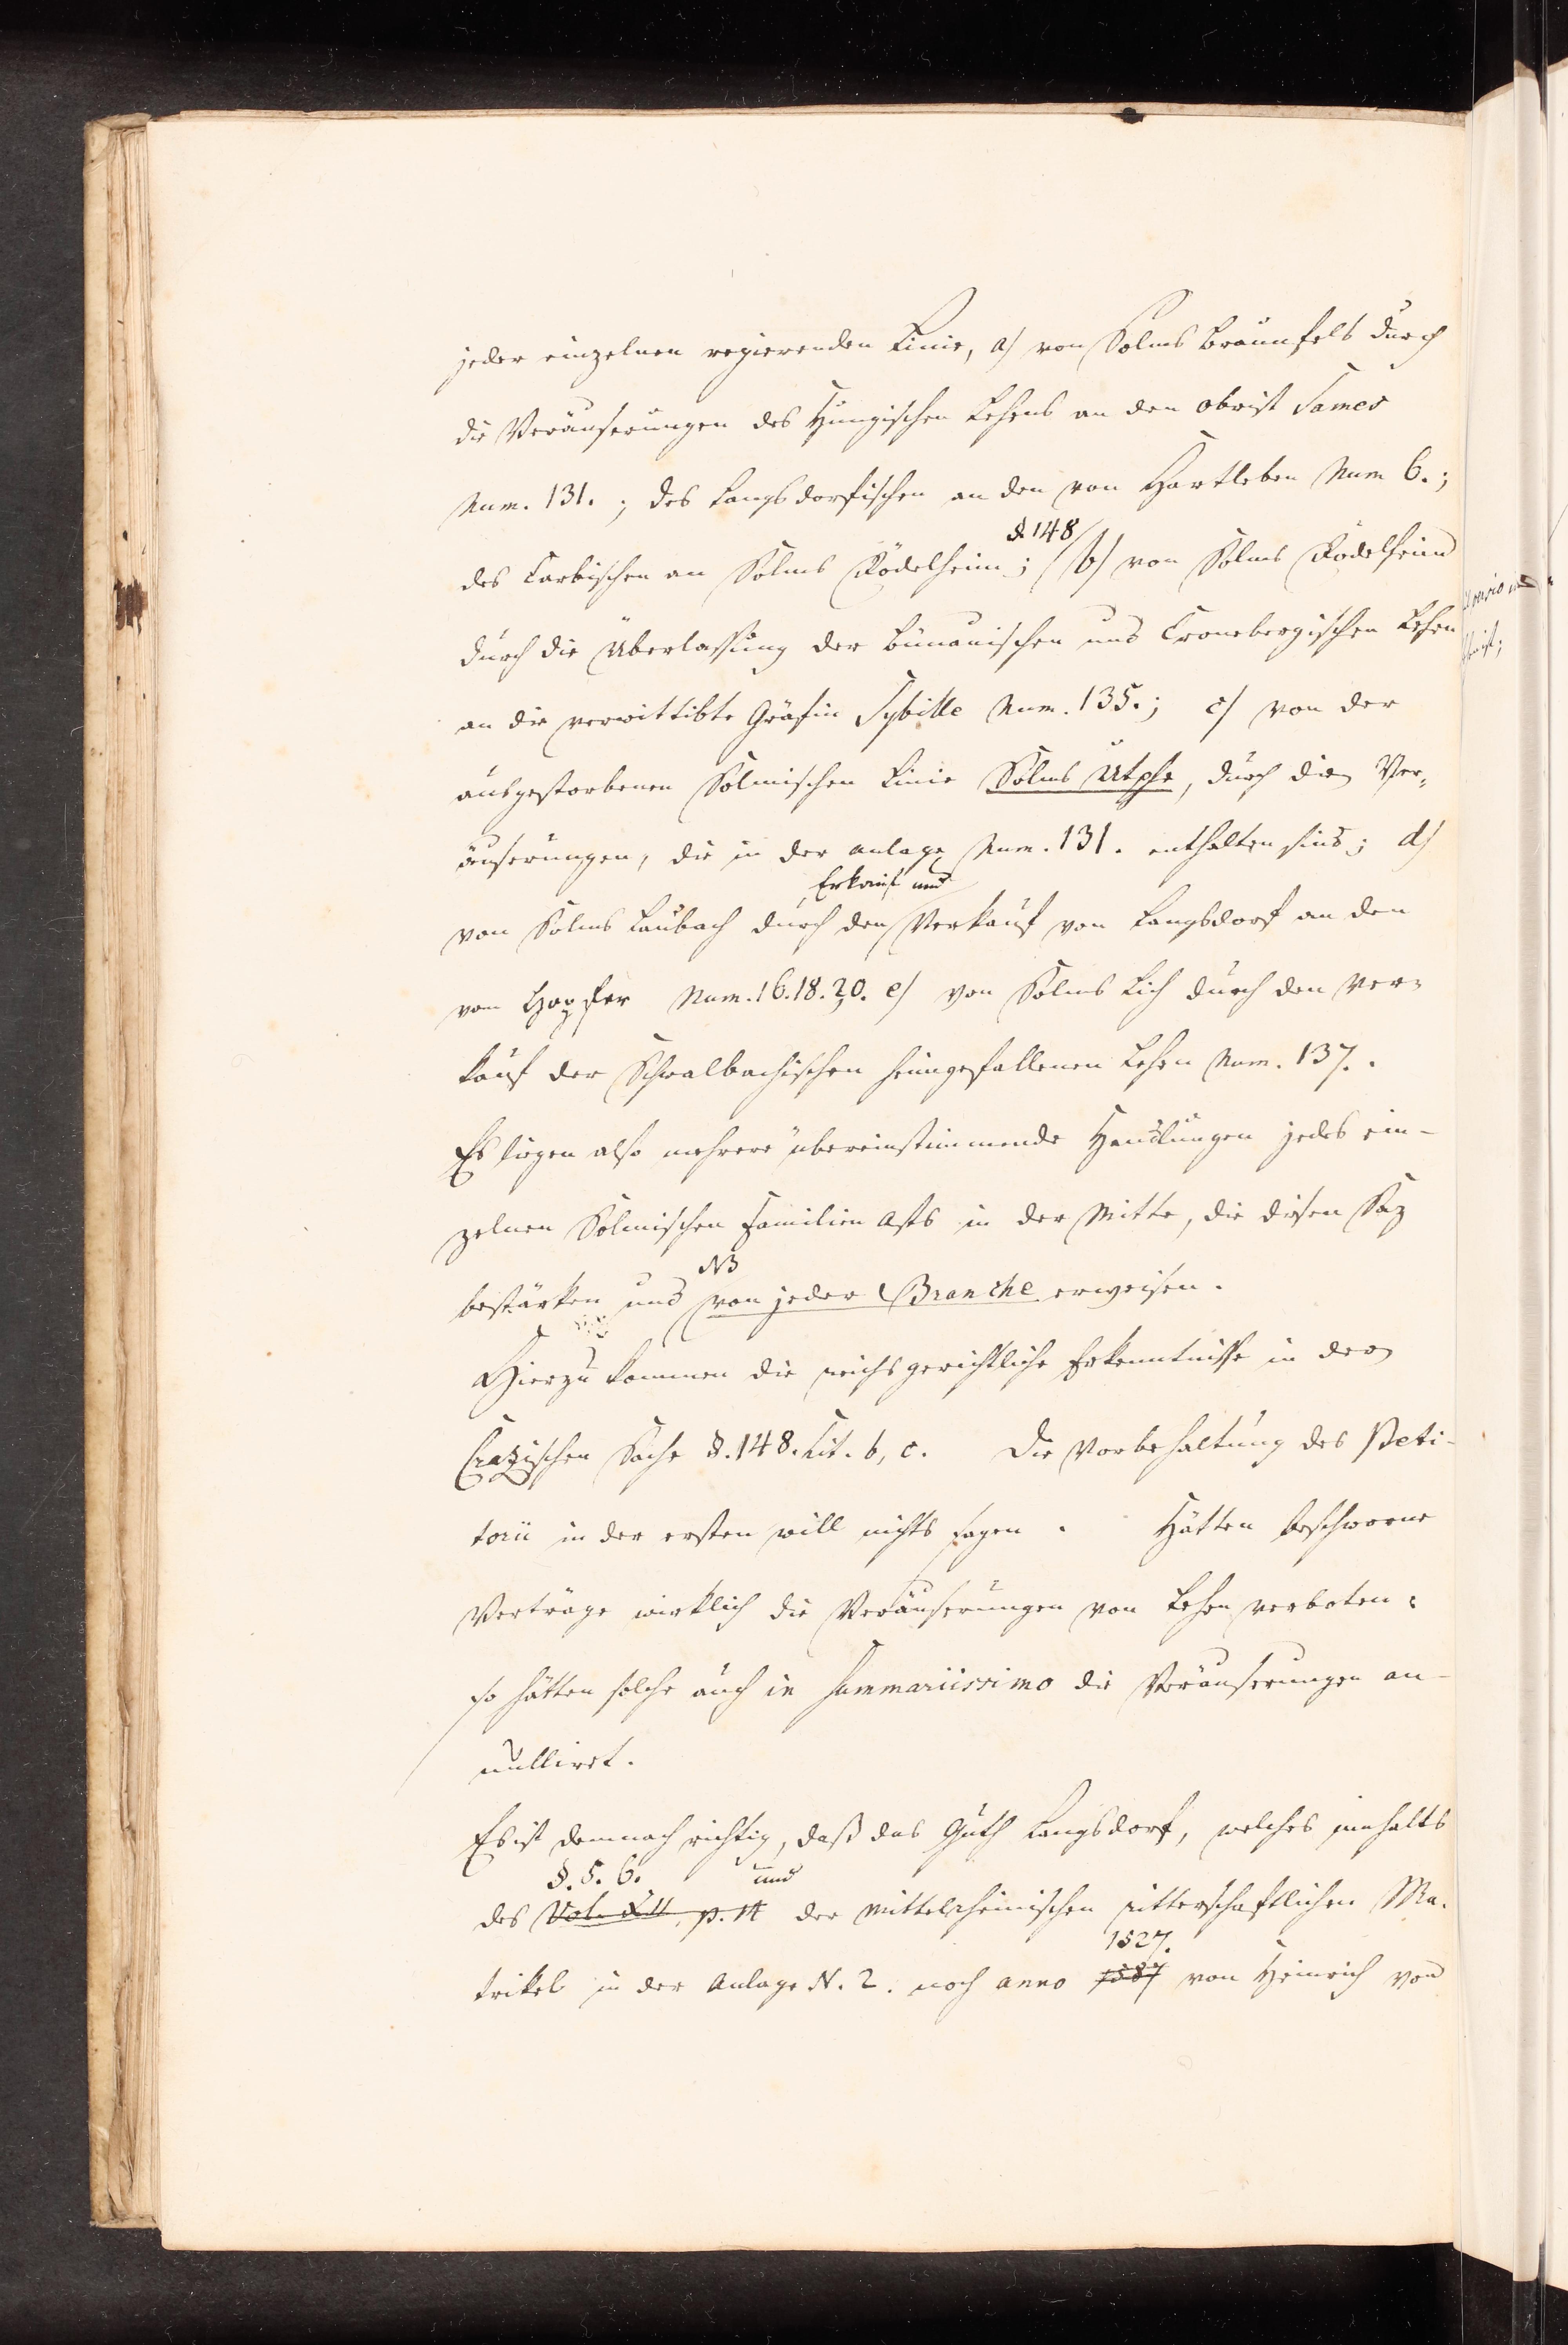 jeder einzelnen regierenden Linie, a) von Solms Braunfels durch
die Veräuserungen des Hungischen Lehens an den Obrist Sames
Num. 131. ; des Langsdorfischen an den von Hartleben Num 6. ;
§. 148
des Carbischen an Solms Rödelheim ; b) von Solms Rödelheim
durch die Überlassung der Bünauischen und Cronebergischen Lehen
an die verwittibte Gräfin Sybille Num. 135. ; c) von der
ausgestorbenen Solmischen Linie Solms Utphe, durch die Ver-
äuserungen, die in der Anlage Num. 131. enthalten sind ; d)
Erkauf und
von Solms Laubach durch den Verkauf von Langsdorf an den
vom Num. 16. 18. 20. e) von Solms Lich durch den Ver-
kauf der Schwalbachischen heimgefallenen Lehen Num. 137. .
Es liegen also mehrere übereinstimmende Handlungen jedes ein-
zelnen Solmischen Familien Asts in der Mitte, die diesen Saz
NB
bestärken und von jeder Branche erweisen.
Hierzu kommen die reichsgerichtliche Erkenntnisse in der
Crazischen Sache §. 148. Lit. b, c. Die Vorbehaltung des Peti-
torii in der ersten will nichts sagen . Hätten beschworne
Verträge wirklich die Veräuserungen von Lehen verboten :
so hätten solche auch in summariissimo die Veräuserungen an-
nulliret.
Es ist demnach richtig, daß das Guth Langsdorf, welches innhalts
§. 5. 6. und
des Vol. XII. p. 14 der mittelrheinischen ritterschaftlichen Ma-
1527.
trikel in der Anlage N. 2. noch anno 1587 von Heinrich von